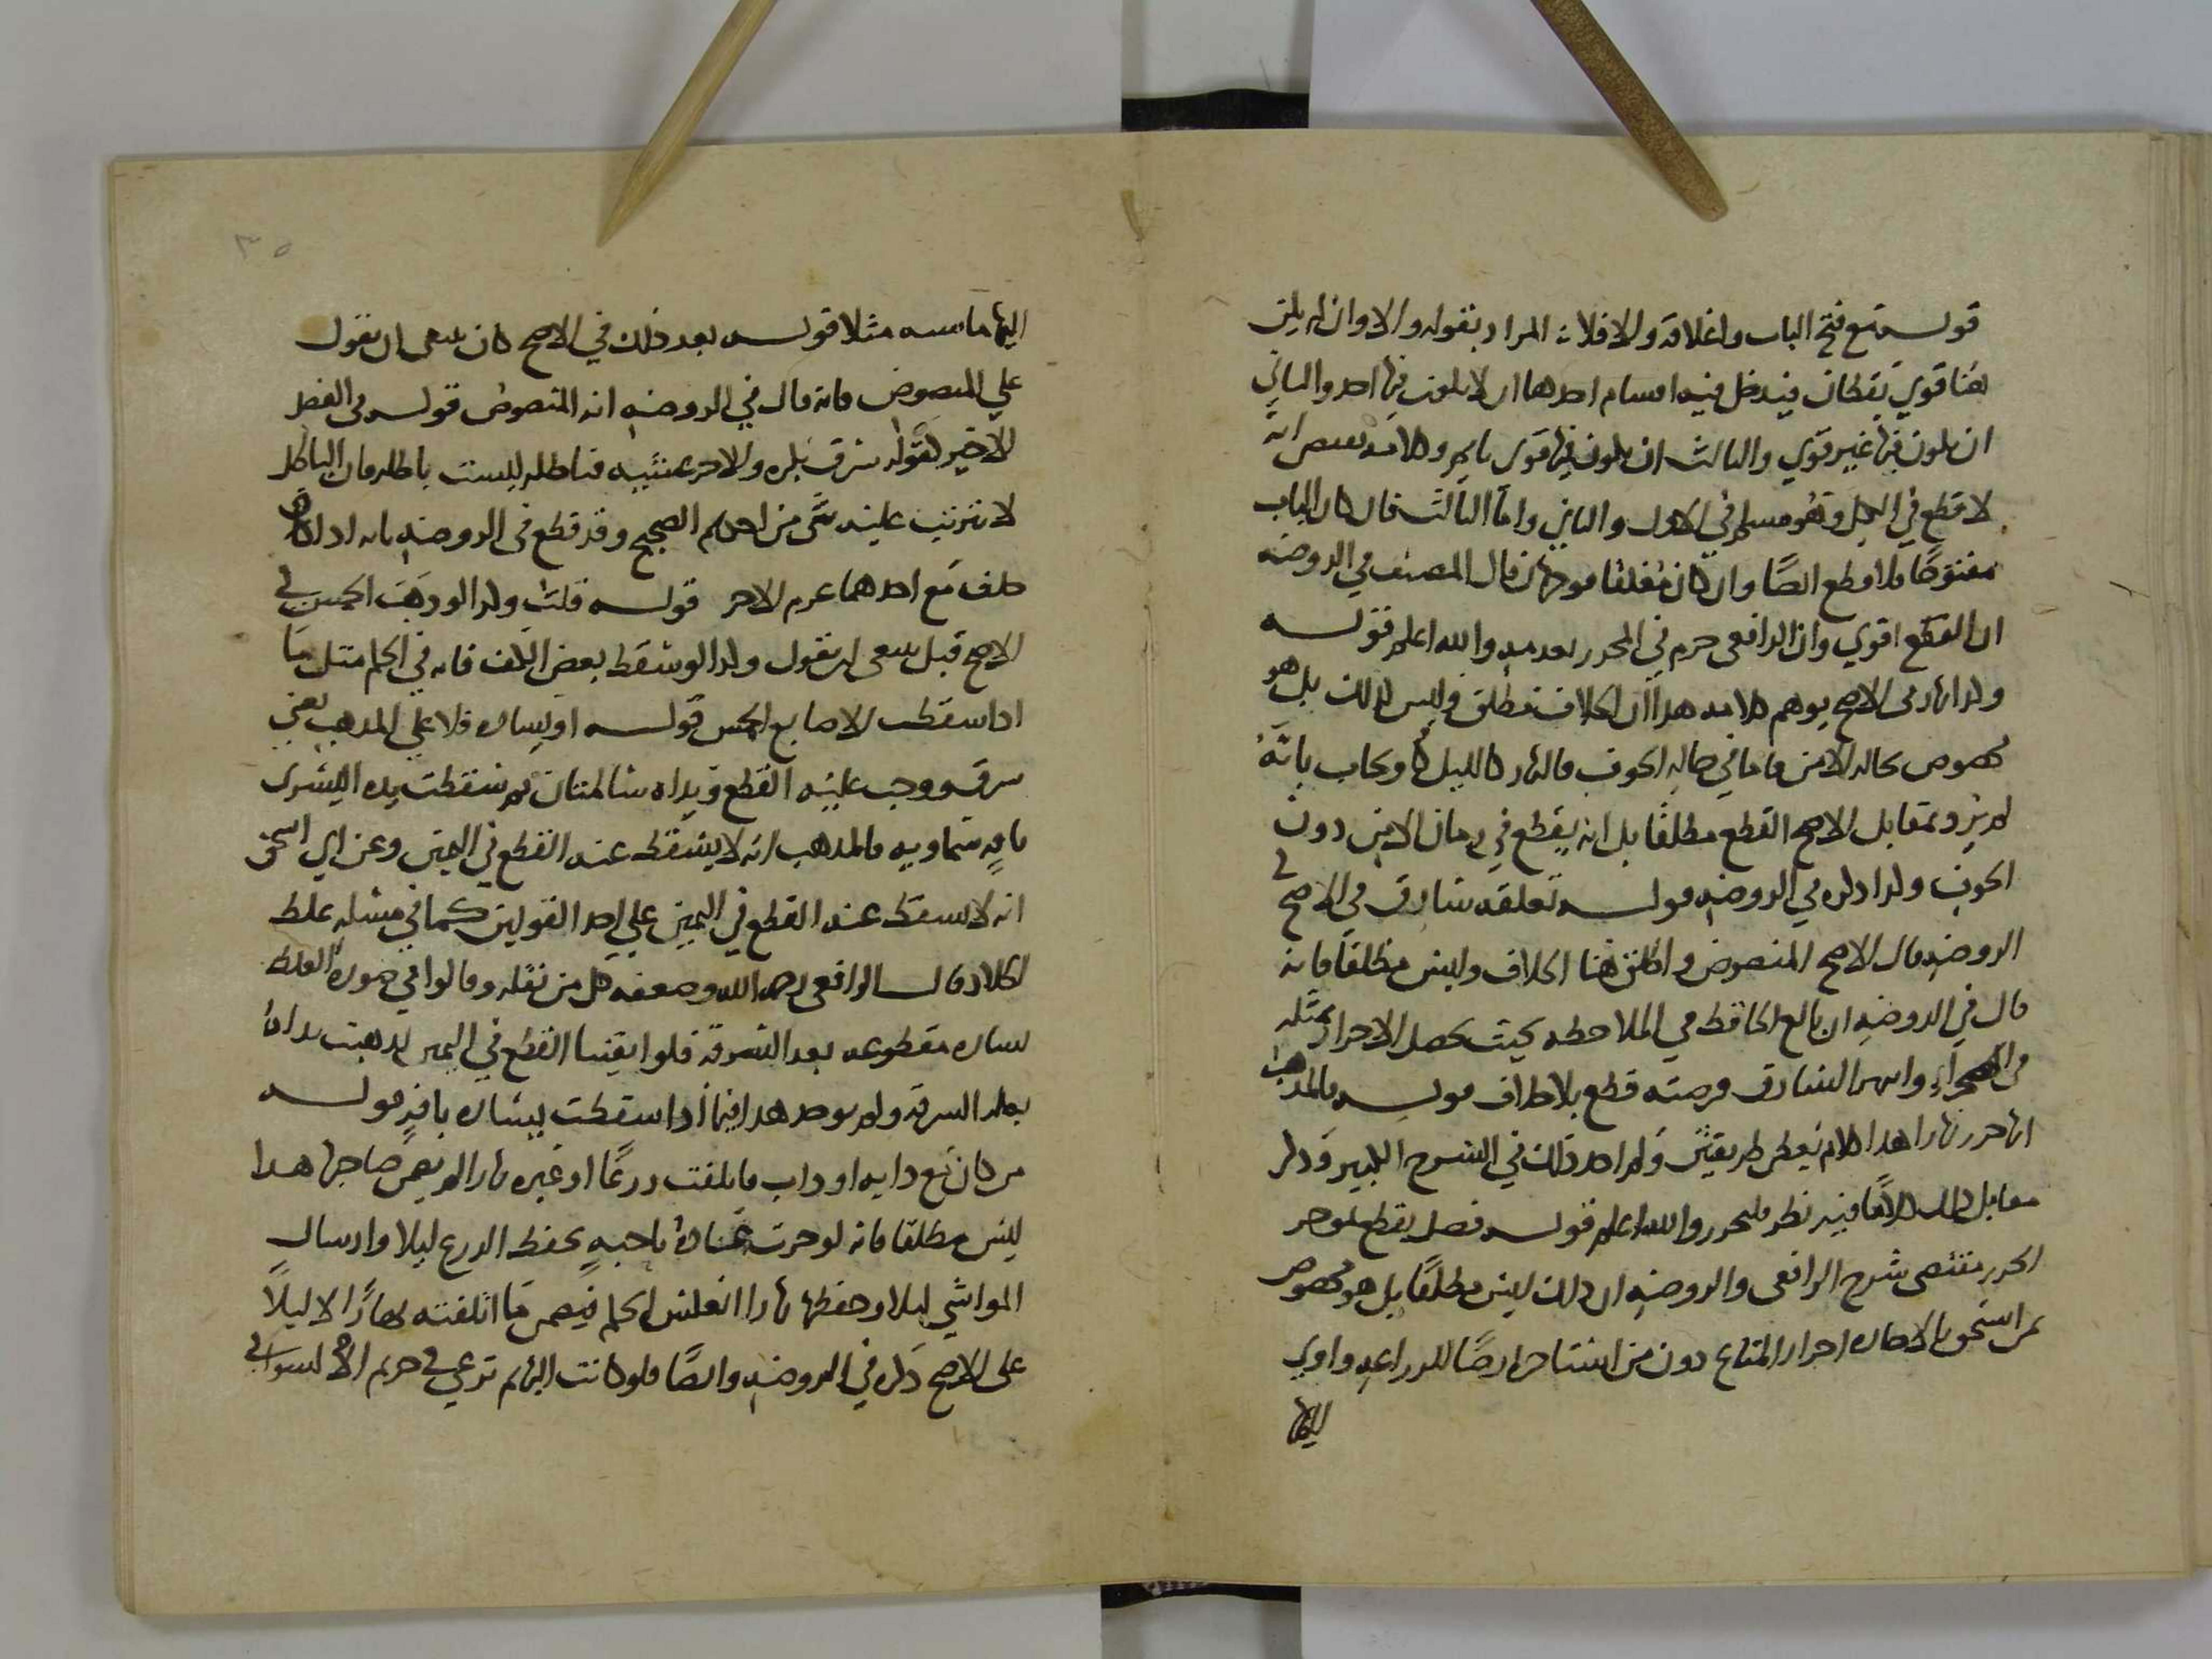 قوله مع فتح الباب واغلاقه والا فلا : المراد بقوله والا وان لم يكن
هنا قوي يقظان فيدخل فيه اقسام احدها ان لا يكون فيها احد والثاني
ان يكون فيها غير قوي والثالث ان يكون فيها قوي نايم وكلامه يقتضي انه
لا قطع في الكل وهو مسلم في الاول والثاني واما الثالث فان كان الباب
مفتوحا فلا قطع ايضا وان كان مغلقا فوجهان قال المصنف في الروضه
ان القطع اقوي وان الرافعي جزم في المحرر بعدمه والله اعلم قوله
ولذا نهار في الاصح يوهم كلامه هذا ان الخلاف مطلق وليس كذلك بل هو
مخصوص بحاله الامن فاما في حاله الخوف فالنهار كالليل ويجاب بانه
لم يرد بمقابل الاصح القطع مطلقا بل انه يقطع في زمان الامن دون
الخوف ولذا ذكره في الروضه قوله تعلقه سارق في الاصح في
الروضه قال الاصح المنصوص واطلق هنا الخلاف وليس مطلقا فانه
قال في الروضه ان بالغ الحافظ في الملاحظه بحيث يحصل الاحراز بمثله
في الصحراء وانتهز السارق فرصته قطع بلا خلاف قوله فالمذهب
انها حرز نهارا هذا كلام يعطي طريقين ولم اجد ذلك في الشرح الكبير وذكر
مقابل ذلك فيه نظر فليحرر والله اعلم قوله فصل يقطع موجر
الحرز مقتضي شرح الرافعي والروضه ان ذلك ليس مطلقا بل هو مخصوص
بمن استحق بالاجاره احراز المتاع دون من استاجر ارضا للزراعه واوي
اليها
اليها ماشيه مثلا قوله بعد ذلك في الاصح كان ينبغي ان يقول
علي المنصوص فانه قال في الروضه انه المنصوص قوله في الفصل
الاخير لقوله سرق بكره والاخر عشيه فباطله ليست باطله فان الباطل
لا يترتب عليه شي من احكام الصحيح وقد قطع في الروضه بانه اذا
حلف مع احدهما غرم الاخر قوله قلت وكذا لو ذهبت الخمس في
الاصح قيل ينبغي ان يقول وكذا لو سقط بعض الكف فانه في الحكم مثل ما
اذا سقطت الاصابع الخمس قوله او يساره فلا علي المذهب يعني
سرق ووجب عليه القطع ويداه سالمتان ثم سقطت يده اليسرى
بافه سماويه فالمذهب انه لا يسقط عنه القطع في اليمين وعن ابي اسحق
انه لا يسقط عنه القطع في اليمين علي احد القولين كما في مسله غلط
الجلاد قال الرافعي رحمه الله وضعفه كل من نقله وقالوا في صورة الغلط
يساره مقطوعه بعد السرقه فلو ابقينا القطع في اليمين لذهبت يداه
بتلك السرقه ولم يوجد هذا فيما اذا سقطت يساره بافه قوله
من كان مع دابه او دواب فاتلفت زرعا او غيره نهارا لم يضمن صاحبها هذا
ليس مطلقا فانه لو جرت عادة ناحيه بحفظ الزرع ليلا وارسال
المواشي ليلا وحفظها نهارا انعكس الحكم فيضمن ما اتلفته نهارا لا ليلا
على الاصح ذكره في الروضه وايضا فلو كانت البهايم ترعي في حريم الانهار